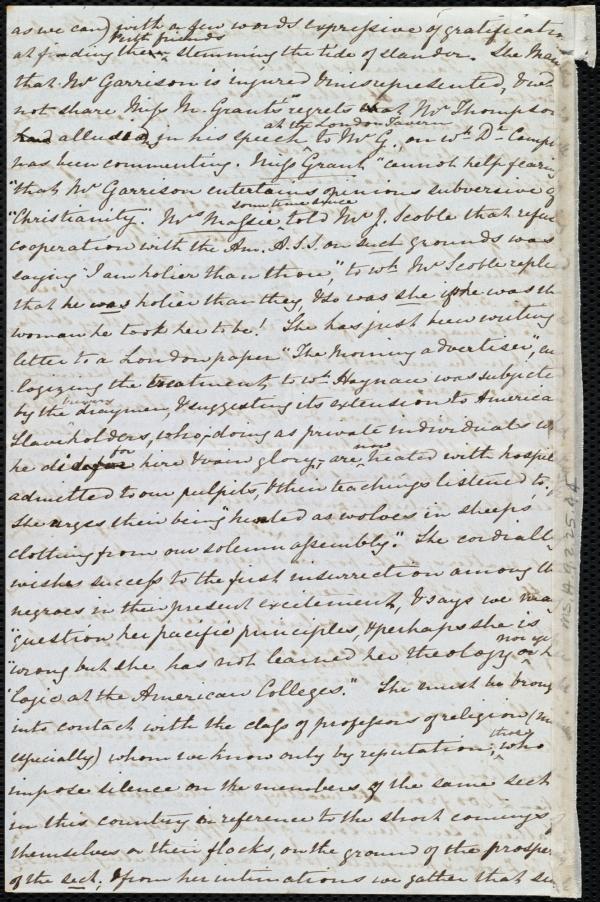 as we can) with a few words expressive of gratificatio
at finding these Irish friends stemming the tide of slander. She
that Mr Garrison is injured & misrepresented, &
not share Miss M. Grant's regrets that Mr Thompson
had alluded, in his speech at the London Tavern to Mr G., on wh. Dr Camp
was been commenting. Miss Grant "cannot help fearin
"that Mr Garrison entertains opinions subversive of
"Christianity". Mrs Massie sometime since told Mr J. Scoble that refu
cooperation with the Am. A.S.S. on such grounds was
saying 'I am holier than thou," to wh. Mr Scoble repli
that he was holier than they & so was she if she was th
woman he took her to be! She has just been writing
letter to a London paper "The Morning advertiser",
logizing the treatment to wh. Haynau was subjecte
by the brewers draymen, & suggesting its extension to America
Slaveholders, who, doing as private individuals w
he did for hire & vain glory, are now treated with hospit
admitted to our pulpits, & their teachings listened to,
She urges their being "hunted as wolves in sheeps
clothing from our solemn assembly". She cordiall
wishes success to the first insurrection among th
negroes in their present excitement, & says we ma
"question her pacific principles, & perhaps she is
"wrong but she has not learned her theology nor
"logic at the American Colleges." She must be brou
into contact with the class of professors of religion
especially) whom we know only by reputation, those who
impose silence on the members of the same sect
in this country in reference to the short comings of
themselves or their flocks, on the ground of the prospe
of the sect; & from her intimations we gather that
MS.A.9.2.25.